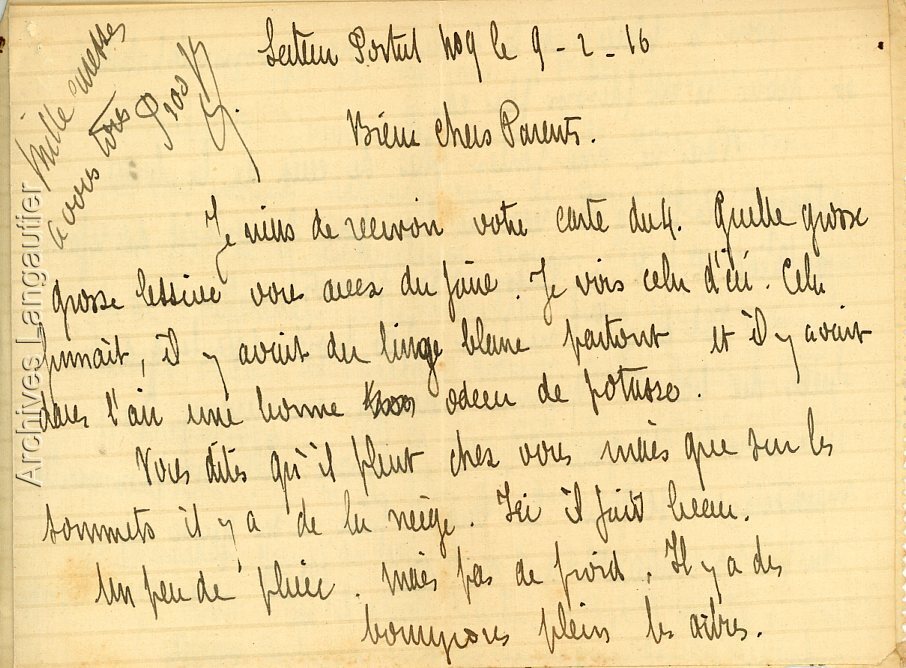 Mille
à vous tous
Secteur Postal le 9-2-16
Bien chers Parents.
Je viens de recevoir votre carte du 4. Quelle grosse
grosse lessive vous avez du faire. Je vois cela d'ici. Cela
fumait, il y avait du linge blanc partout et il y avait
dans l'air une bonne odeur de potasse.
Vous dites qu'il pleut chez vous mais que sur les
sommets il y a de la neige. Ici il fait beau.
Un peu de pluie. mais pas de froid. Il y a des
bourgeons plein les arbres.
Archives Langautier